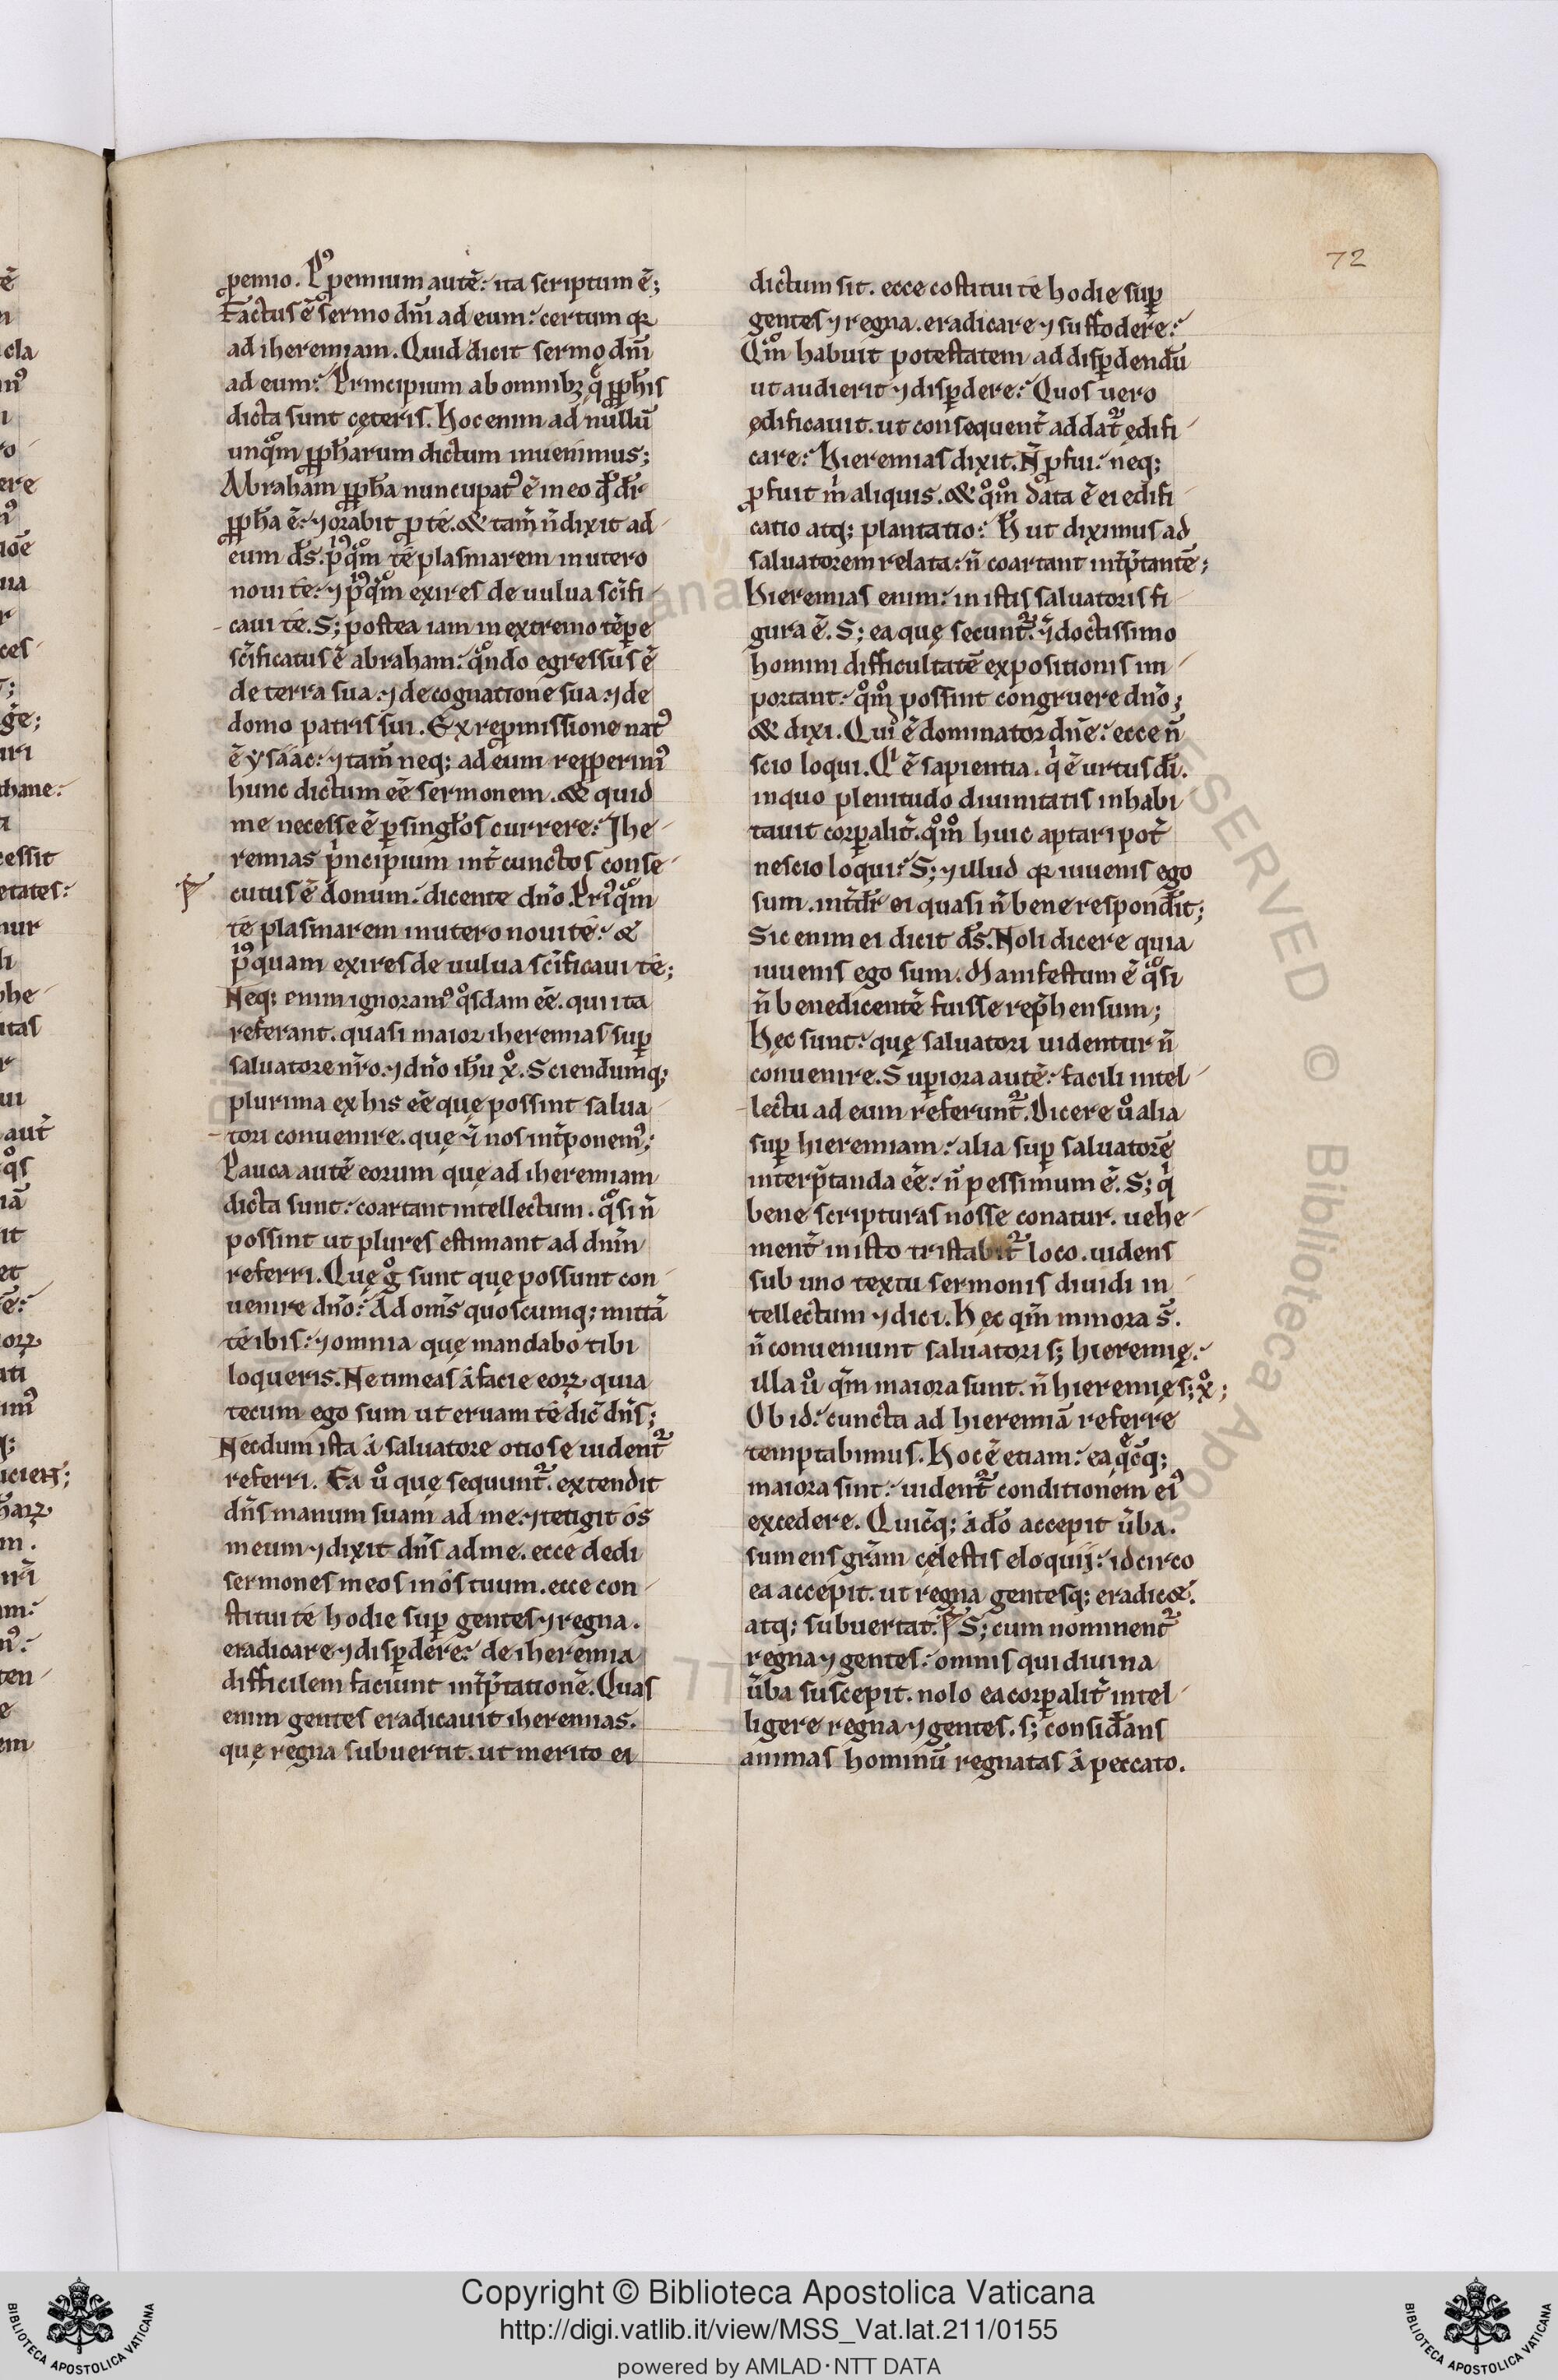 72
ꝓemio. Pꝰ ꝓemium autē: ita scriptum ē;
Factus ē sermo dn̄i ad eum: certum qr
ad iheremiam. Quid dicit sermo dn̄i
ad eum: Principium ab omnibꝫ q̨ ꝓph̄is
dicta sunt cęteris. Hoc enim ad nullū
unqͦm ꝓph̄arum dictum inuenimus;
Abraham ꝓph̄a nuncupatꝰ ē in eo qd̄ dr̄
ꝓph̄a ē: ⁊ orabit ꝓ te. & tam̄ n̄ dixit ad
eum ds̄. pꝰqͦm te plasmarem in utero
noui te: ⁊ pꝰqͦm exires de uulua sc̄ifi-
caui te. S; postea iam in extremo tēpore
sc̄ificatus ē abraham: qͦndo egressus ē
de terra sua: ⁊ de cognatione sua: ⁊ de
domo patris sui. Ex repromissione natꝰ
ē ysaac: ⁊ tam̄ neq; ad eum repperimꝰ
hunc dictum eē sermonem. & quid
me necesse ē ꝑ singlos currere: Ihe-
remias pͥncipium int̄ cunctos conse-
cutus ē donum: dicente dn̄o. Priꝰqͦm
te plasmarem in utero noui te: &
pꝰquam exires de uulua sc̄ificaui te;
Neq; enim ignoramꝰ qͦsdam eē. qui ita
referant. quasi maior iheremias suꝑ
saluatore nr̄o. ⁊ dn̄o ih̄u xͦ. Sciendumq;
plurima ex his eē que possint salua-
tori conuenire. quę ⁊̄ nos int̄ponemꝰ;
Pauca autē eorum quę ad iheremiam
dicta sunt: coartant intellectum. qͦsi n̄
possint ut plures estimant ad dn̄m
referri. Quę gͦ sunt quę possunt con-
uenire dn̄o: Ad om̄s quoscumq; mittā
te ibis: ⁊ omnia quę mandabo tibi
loqueris. Ne timeas a facie eoꝝ quia
tecum ego sum ut eruam te dic̄ dn̄s;
Necdum ista a saluatore otiose uident᷑
referri. Ea uͦ quę sequunt᷑. extendit
dn̄s manum suam ad me: ⁊ tetigit os
meum ⁊ dixit dn̄s ad me. ecce dedi
sermones meos in os tuum. ecce con-
stitui te hodie suꝑ gentes ⁊ regna.
eradicare ⁊ disꝑdere: de iheremia
difficilem faciunt int̄p̄tationē. Quas
enim gentes eradicauit iheremias.
quę regna subuertit. ut merito ei
dictum sit. ecce costitui te hodie suꝑ
gentes ⁊ regna. eradicare ⁊ suffodere:
Qͦm̄ habuit potestatem ad disꝑdendū
ut audierit ⁊ disꝑdere: Quos uero
ędificauit. ut consequent̄ addat᷑ ędifi-
care: Hieremias dixit. N̄ ꝓfui: neq;
ꝓfuit m̄ aliquis. & qͦmͦ data ē ei edifi-
catio atq; plantatio: H̄ ut diximus ad
saluatorem relata: n̄ coartant int̄p̄tantē;
Hieremias enim: in istis saluatoris fi-
gura ē. S; ea quę secunt᷑. ⁊̄ doctissimo
homini difficultatē expositionis im-
portant: qͦmͦ possint congruere dn̄o;
& dixi. Qui ē dominator dn̄e: ecce n̄
scio loqui. Qͥ ē sapientia. qͥ ē uirtus dī.
in quo plenitudo diuinitatis inhabi-
tauit corꝑalit̄. qͦmͦ huic aptari pot̄
nescio loqui: S; ⁊ illud qr iuuenis ego
sum. int̄dr̄ ei quasi n̄ bene respond̄it;
Sic enim ei dicit ds̄. Noli dicere quia
iuuenis ego sum. Manifestum ē qͦsi
n̄ bene dicentē fuisse rep̄hensum;
Hęc sunt: quę saluatori uidentur n̄
conuenire. Suꝑiora autē: facili intel-
lectu ad eum referunt᷑. Dicere uͦ alia
suꝑ hieremiam: alia suꝑ saluatorē
interp̄tanda eē: n̄ pessimum ē. S; qͥ
bene scripturas nosse conatur. uehe-
ment̄ in isto tristabit᷑ loco. uidens
sub uno textu sermonis diuidi in-
tellectum ⁊ dici. Hęc qm̄ minora s̄.
n̄ conueniunt saluatori s; hieremię:
illa uͦ qm̄ maiora sunt. n̄ hieremię s; xͦ;
Ob id: cuncta ad hieremiā referre
temptabimus. Hoc ē etiam: ea q̨cūq;
maiora sint: uident᷑ conditionem eiꝰ
excedere. Quicūq; a dō accepit ūba.
sumens gr̄am cęlestis eloquij: idcirco
ea accepit. ut regna gentesq; eradic&.
atq; subuertat. S; cum nominent᷑
regna ⁊ gentes: omnis qui diuina
ūba suscepit. nolo ea corꝑalit̄ intel-
ligere regna ⁊ gentes. s; consid̄ans
animas hominū regnatas a peccato.
Copyright © Biblioteca Apostolica Vaticana
http://digi.vatlib.it/view/MSS_Vat.lat.211/0155
powered by AMLAD·NTT DATA